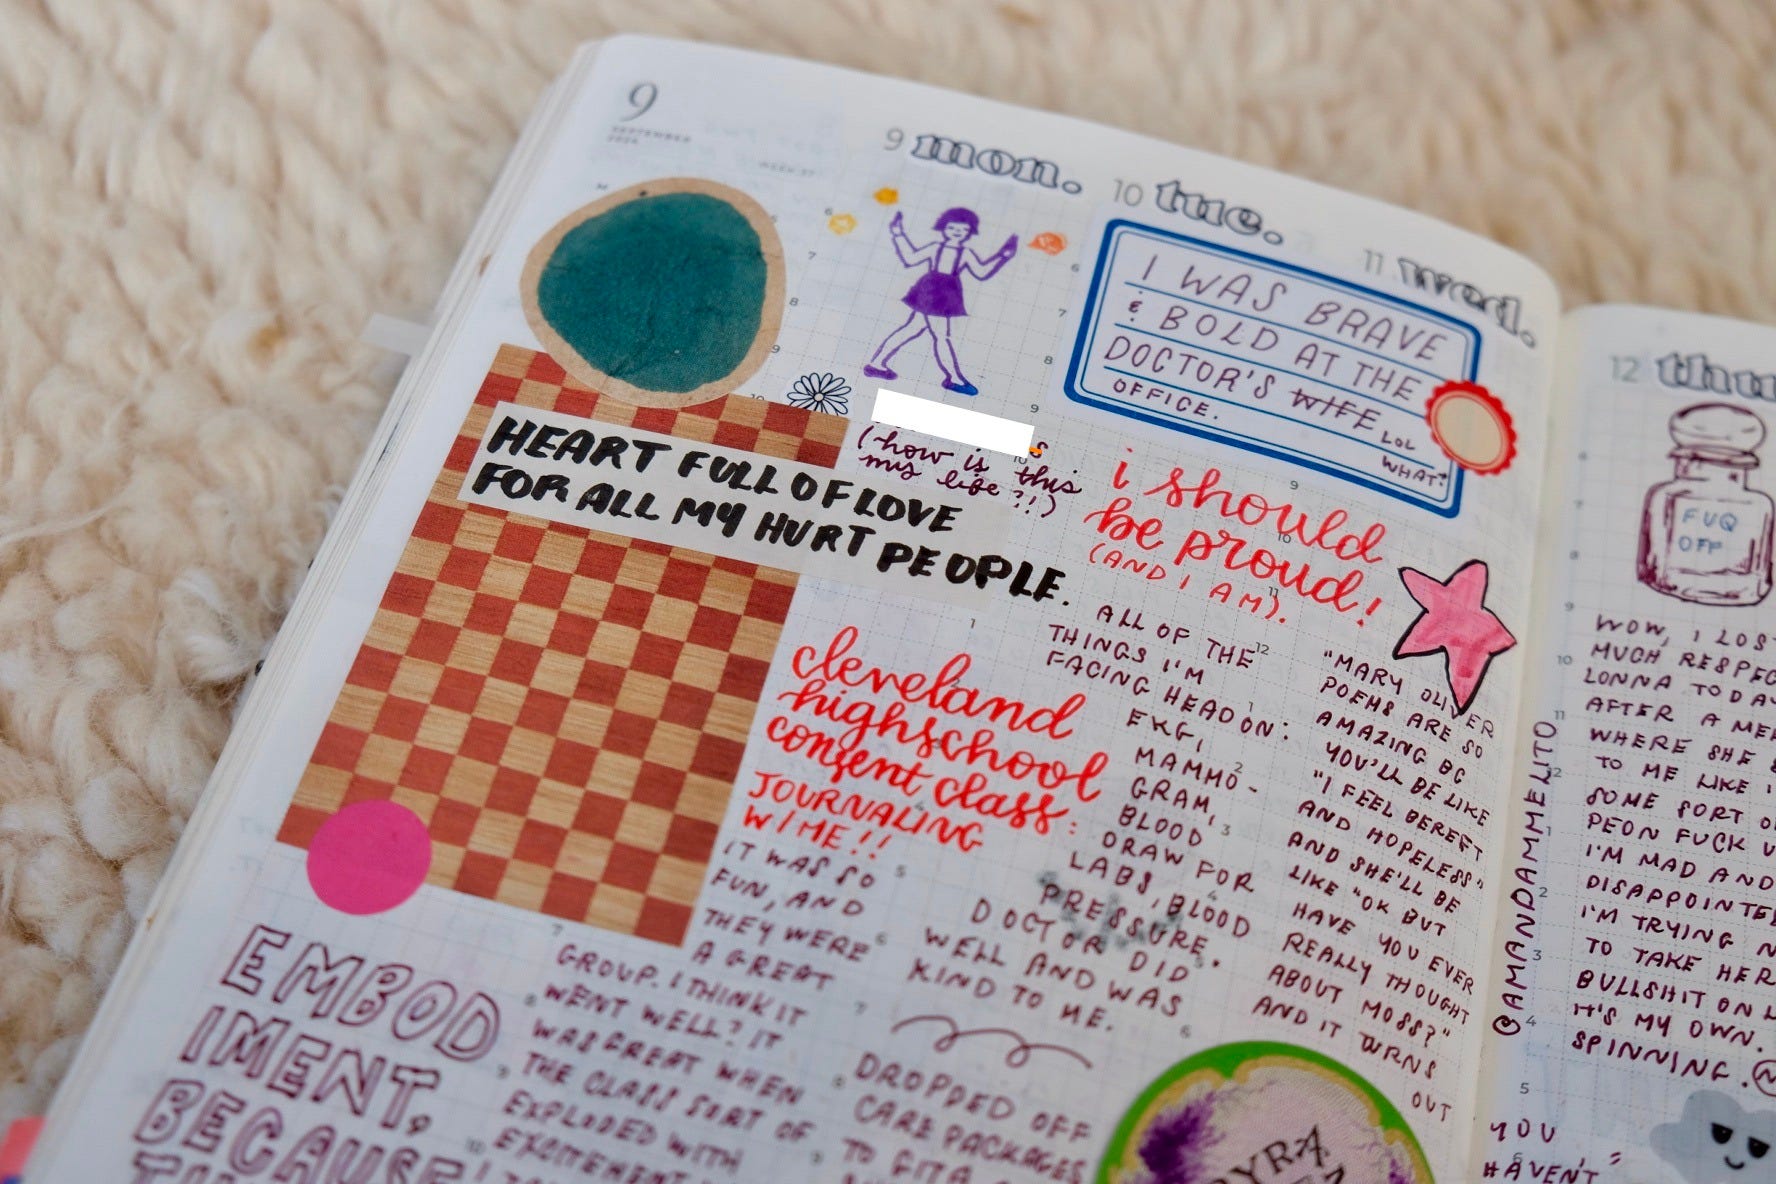 9
SEPTEMBER
2024
WEEK 37
M
9 mon.
10 tue.
11 wed.
HEART FULL OF LOVE
FOR ALL MY HURT PEOPLE.
(how is this
my life?!)
cleveland
highschool
consent class:
JOURNALING
W/ ME!!
IT WAS SO
FUN, AND
THEY WERE
A GREAT
GROUP. I THINK IT
WENT WELL? IT
WAS GREAT WHEN
THE CLASS SORT OF
EXPLODED WITH
EXCITEMENT
EMBOD
IMENT,
BECAUSE
I WAS BRAVE
& BOLD AT THE
DOCTOR'S WIFE LOL
OFFICE. WHAT?
i should
be proud!
(AND I AM).
ALL OF THE
THINGS I'M
FACING HEAD ON:
EKG,
MAMMO-
GRAM,
BLOOD
DRAW FOR
LABS, BLOOD
PRESSURE.
DOCTOR DID
WELL AND WAS
KIND TO ME.
DROPPED OFF
CARE PACKAGES
TO GITA
"MARY OLIVER
POEMS ARE SO
AMAZING BC
YOU'LL BE LIKE
"I FEEL BEREFT
AND HOPELESS"
AND SHE'LL BE
LIKE "OK BUT
HAVE YOU EVER
REALLY THOUGHT
ABOUT MOSS?"
AND IT TURNS
OUT
YOU
HAVEN'T"
@AMANDAMMELITO
12 thu
FUQ
OFF
WOW, I LOS
MUCH RESPEC
LONNA TODAY
AFTER A MEE
WHERE SHE
TO ME LIKE I
SOME SORT O
PEON FUCK U
I'M MAD AND
DISAPPOINTE
I'M TRYING N
TO TAKE HER
BULLSHIT ON
IT'S MY OWN.
SPINNING.